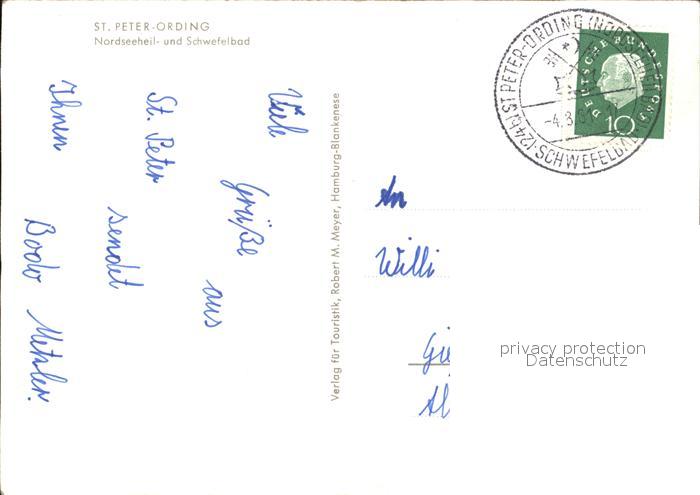 ST. PETER-ORDING
Nordseeheil- und Schwefelbad
Viele
Grüße aus
St. Peter
sendet
Ihnen
Bodo Metzler.
Verlag für Touristik, Robert M. Meyer, Hamburg-Blankenese
(24b) ST PETER-ORDING (NORDSEEHEIL
SCHWEFELBAD
-4.8.
DEUTSCHE BUNDESPOST
10
An
Willi
Gie
Al
privacy protection
Datenschutz